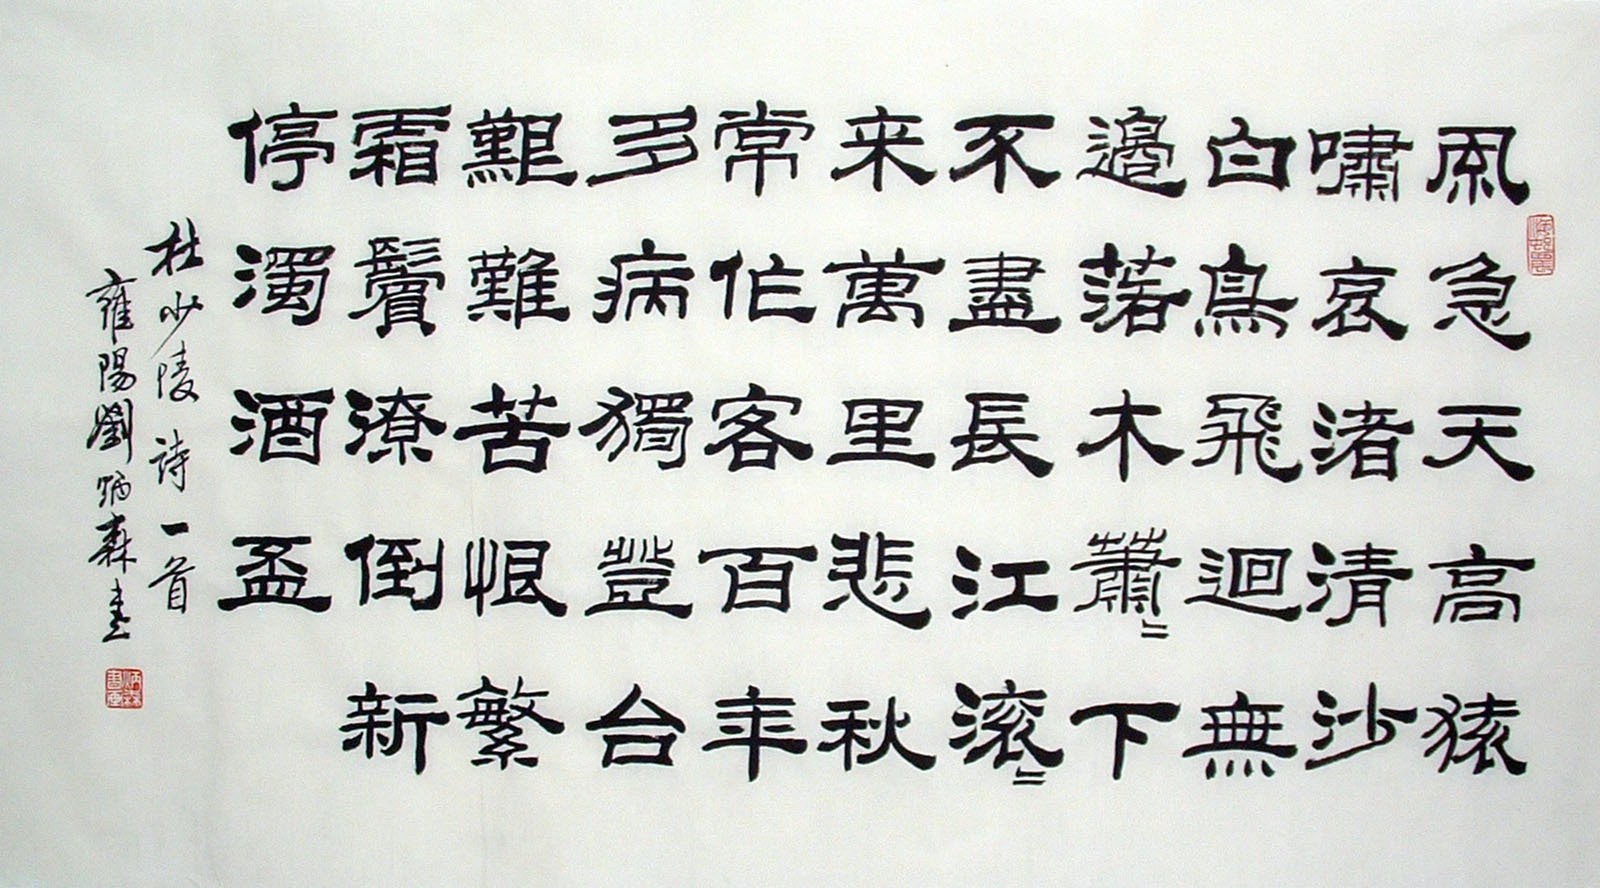 風急天高猿
嘯哀渚清沙
白鳥飛迴無
邊落木蕭〻下
不盡長江滚〻
来萬里悲秋
常作客百年
多病獨登台
艱難苦恨繁
霜鬢潦倒新
停濁酒盃
杜少陵詩一首
雍陽劉炳森書